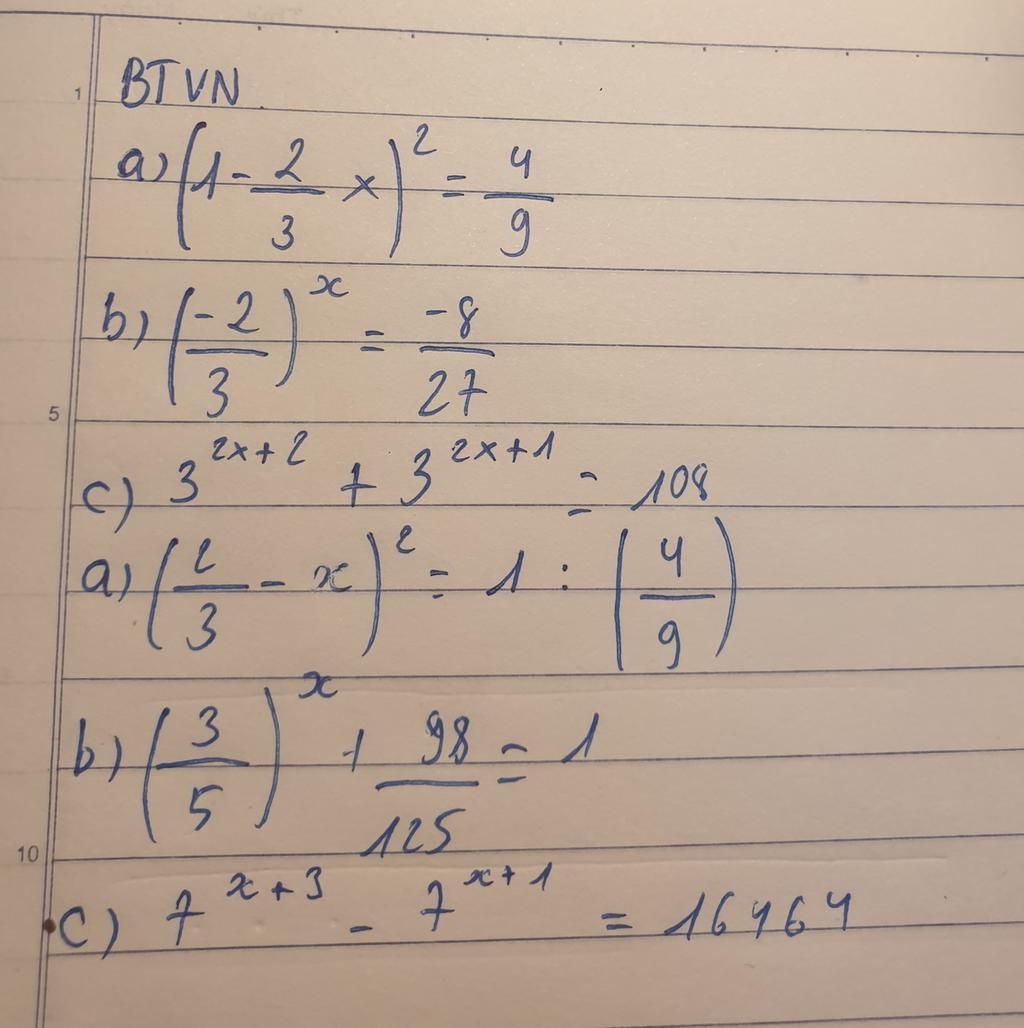 1 BTVN
a) (1 - 2/3 x)² = 4/9
b) (-2/3)ˣ = -8/27
5
c) 3²ˣ⁺² + 3²ˣ⁺¹ = 108
a) (2/3 - x)² = 1 : (4/9)
b) (3/5)ˣ + 98/125 = 1
10
c) 7ˣ⁺³ - 7ˣ⁺¹ = 16464